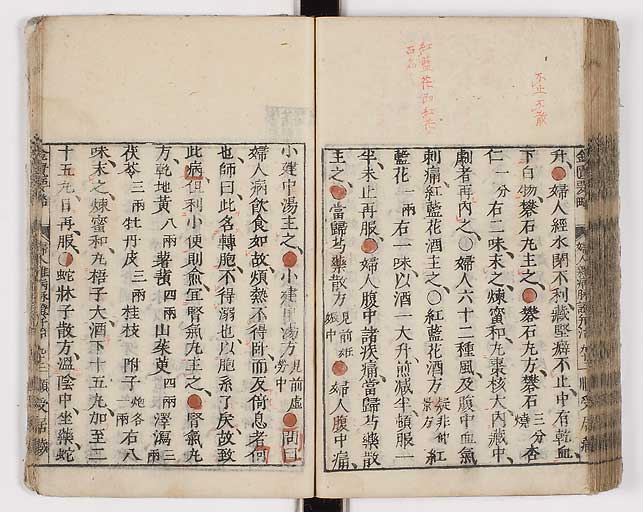 不止 不散
紅藍花即紅花
金匱要略
順受居藏
升●婦人經水閉不利藏堅癖不止中有乾血
下白物礬石丸主之●礬石丸方礬石三分燒杏
仁一分右二味末之煉蜜和丸棗核大內藏中
劇者再內之○婦人六十二種風及腹中血氣
刺痛紅藍花酒主之○紅藍花酒方疑非仲景方紅
藍花一兩右一味以酒一大升煎減半頓服一
半未止再服●婦人腹中諸疾痛當歸芍藥散
主之●當歸芍藥散方見前妊娠中●婦人腹中痛
小建中湯主之●小建中湯方見前虛勞中●問曰
婦人病飲食如故煩熱不得臥而反倚息者何
也師曰此名轉胞不得溺也以胞系了戾故致
此病但利小便則愈宜腎氣丸主之●腎氣丸
方乾地黃八兩薯蕷四兩山茱萸四兩澤瀉三兩
茯苓三兩牡丹皮三兩桂枝附子炮各一兩右八
味末之煉蜜和丸梧子大酒下十五丸加至二
十五丸日再服●蛇牀子散方溫陰中坐藥蛇
順受居藏